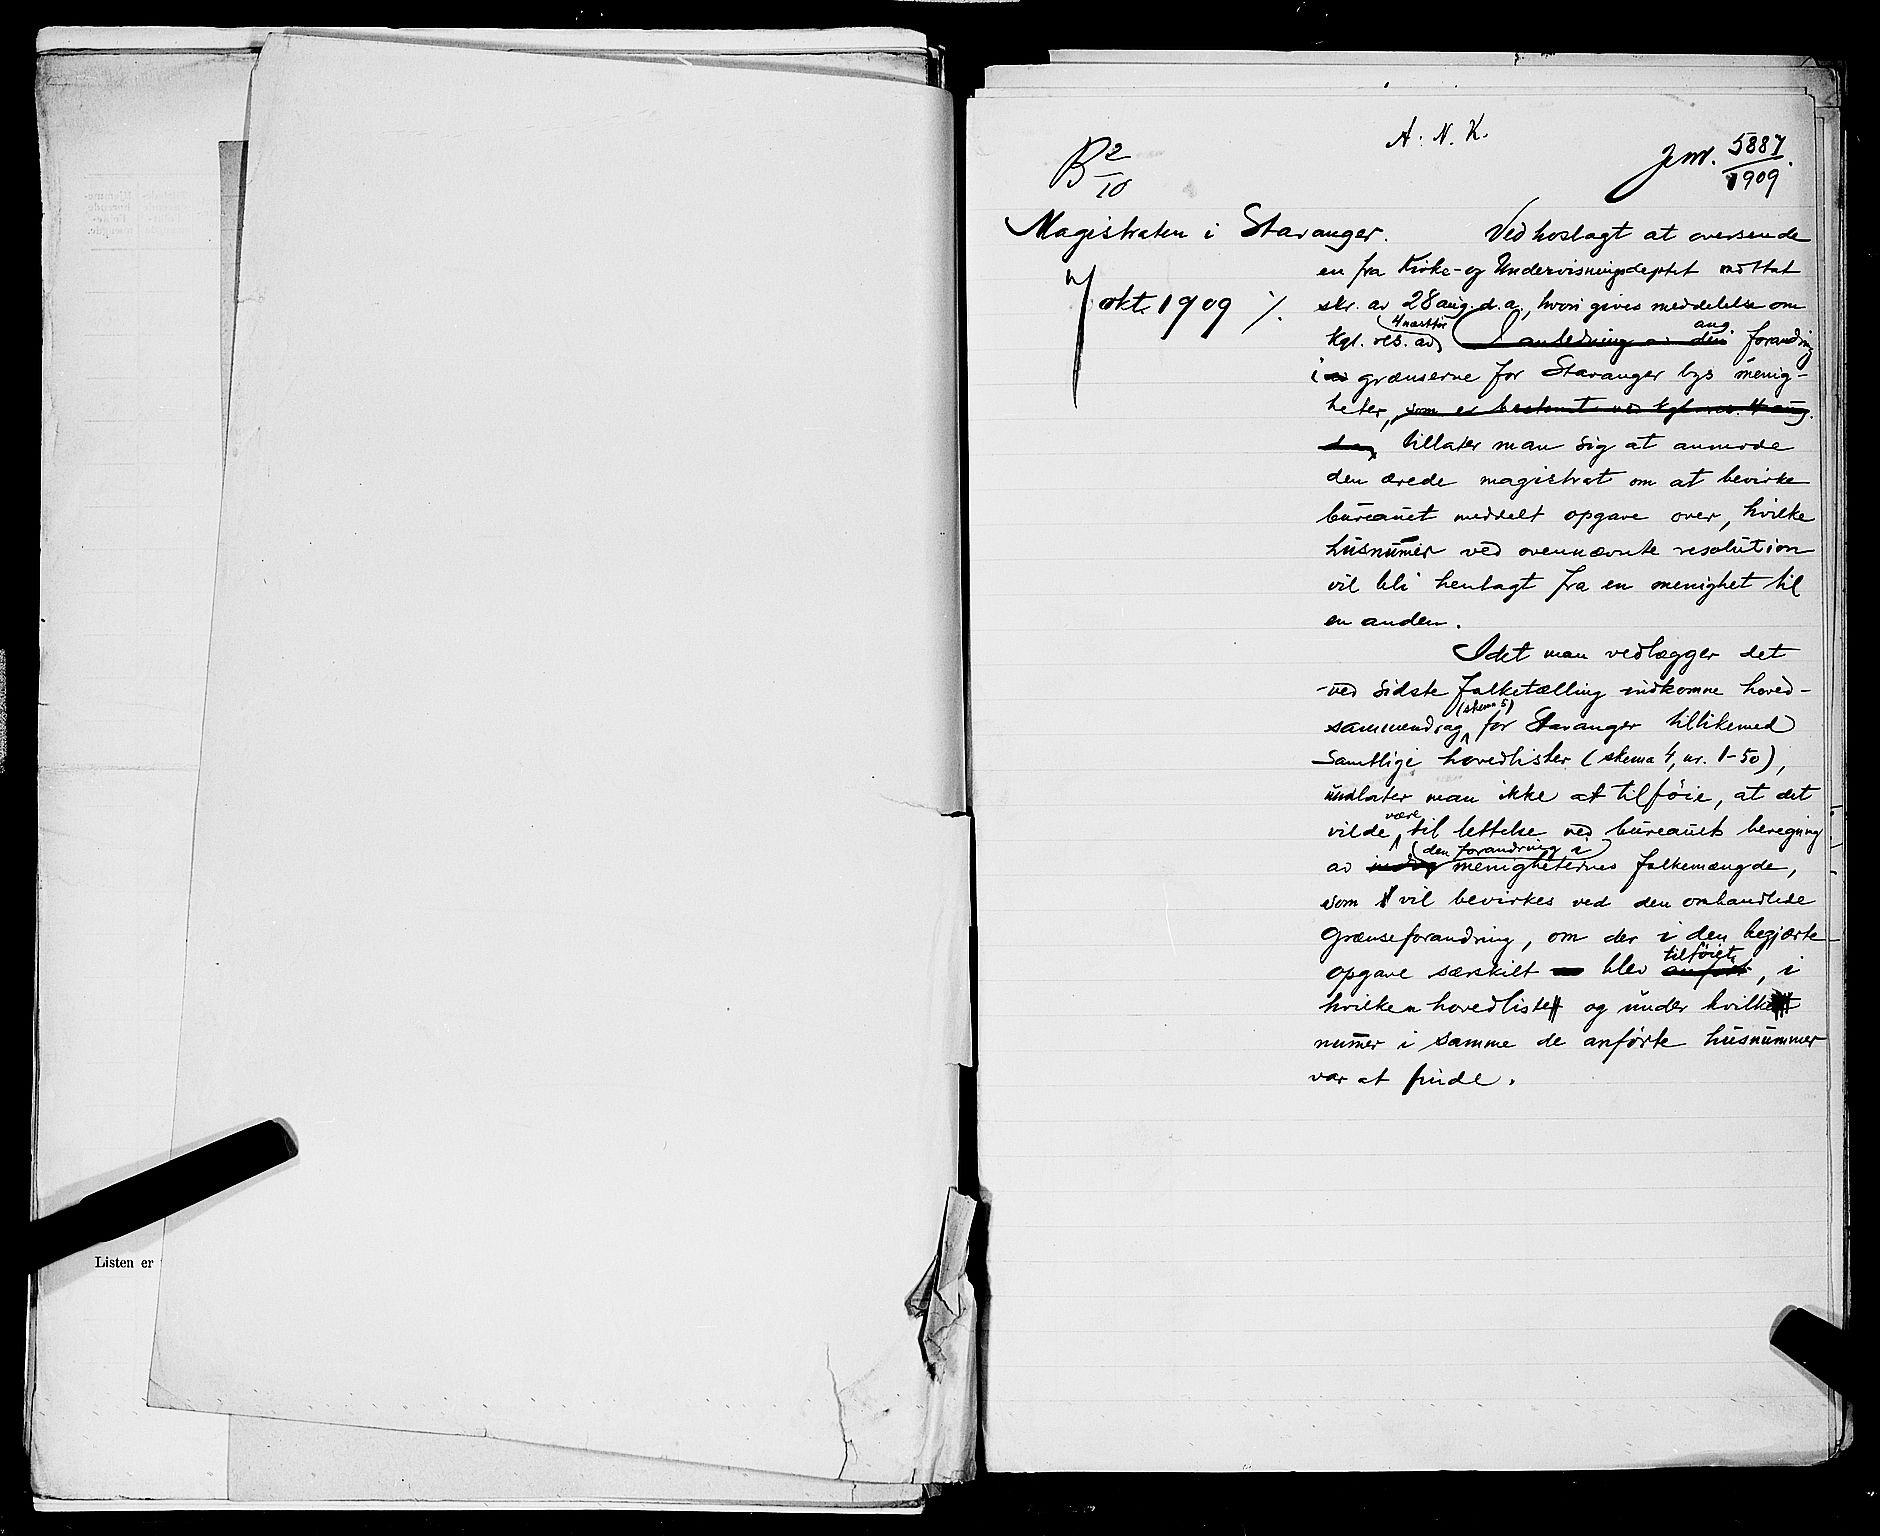 Listen er
A. N. K.
B 2/10
Jnr. 5887/1909.
Magistraten i Stavanger.
7 okt. 1909 %.
Ved hoslagt at oversende
en fra Kirke- og Undervisningsdeptet mottat
skr. av 28 aug. d. a., hvori gives meddelelse om
kgl. res. av 4 næstfør I anledning av den ang. forandring
i av grænserne for Stavanger bys menig-
heter, som er bestemt ved kgl. res. 4 aug.
d. a., tillater man sig at anmode
den ærede magistrat om at bevirke
bureauet meddelt opgave over, hvilke
husnumer ved ovennævnte resolution
vil bli henlagt fra en menighet til
en anden.
Idet man vedlægger det
ved sidste folketælling indkomne hoved-
sammendrag (skema 5) for Stavanger tillikemed
samtlige hovedlister (skema 4, nr. 1-50),
undlater man ikke at tilføie, at det
vilde være til lettelse ved bureauets beregning
av den forandring i menigheternes folkemængde,
som vil bevirkes ved den omhandlede
grænseforandring, om der i den begjærte
opgave særskilt blev anført tilføiet, i
hvilken hovedliste og under hvilket
numer i samme de anførte husnummer
var at finde.